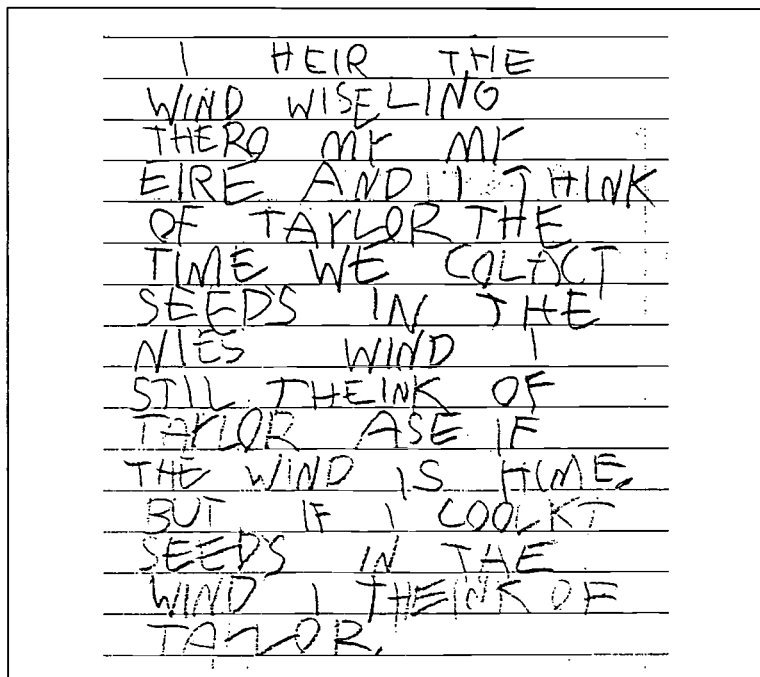 I HEIR THE
WIND WISELING
THERO MY MY
EIRE AND I THINK
OF TAYLOR THE
TIME WE COLACT
SEEDS IN THE
NIES WIND I
STIL THEINK OF
TAYLOR ASE IF
THE WIND IS HIME.
BUT IF I COOLKT
SEEDS IN THE
WIND I THEINK OF
TAYLOR.